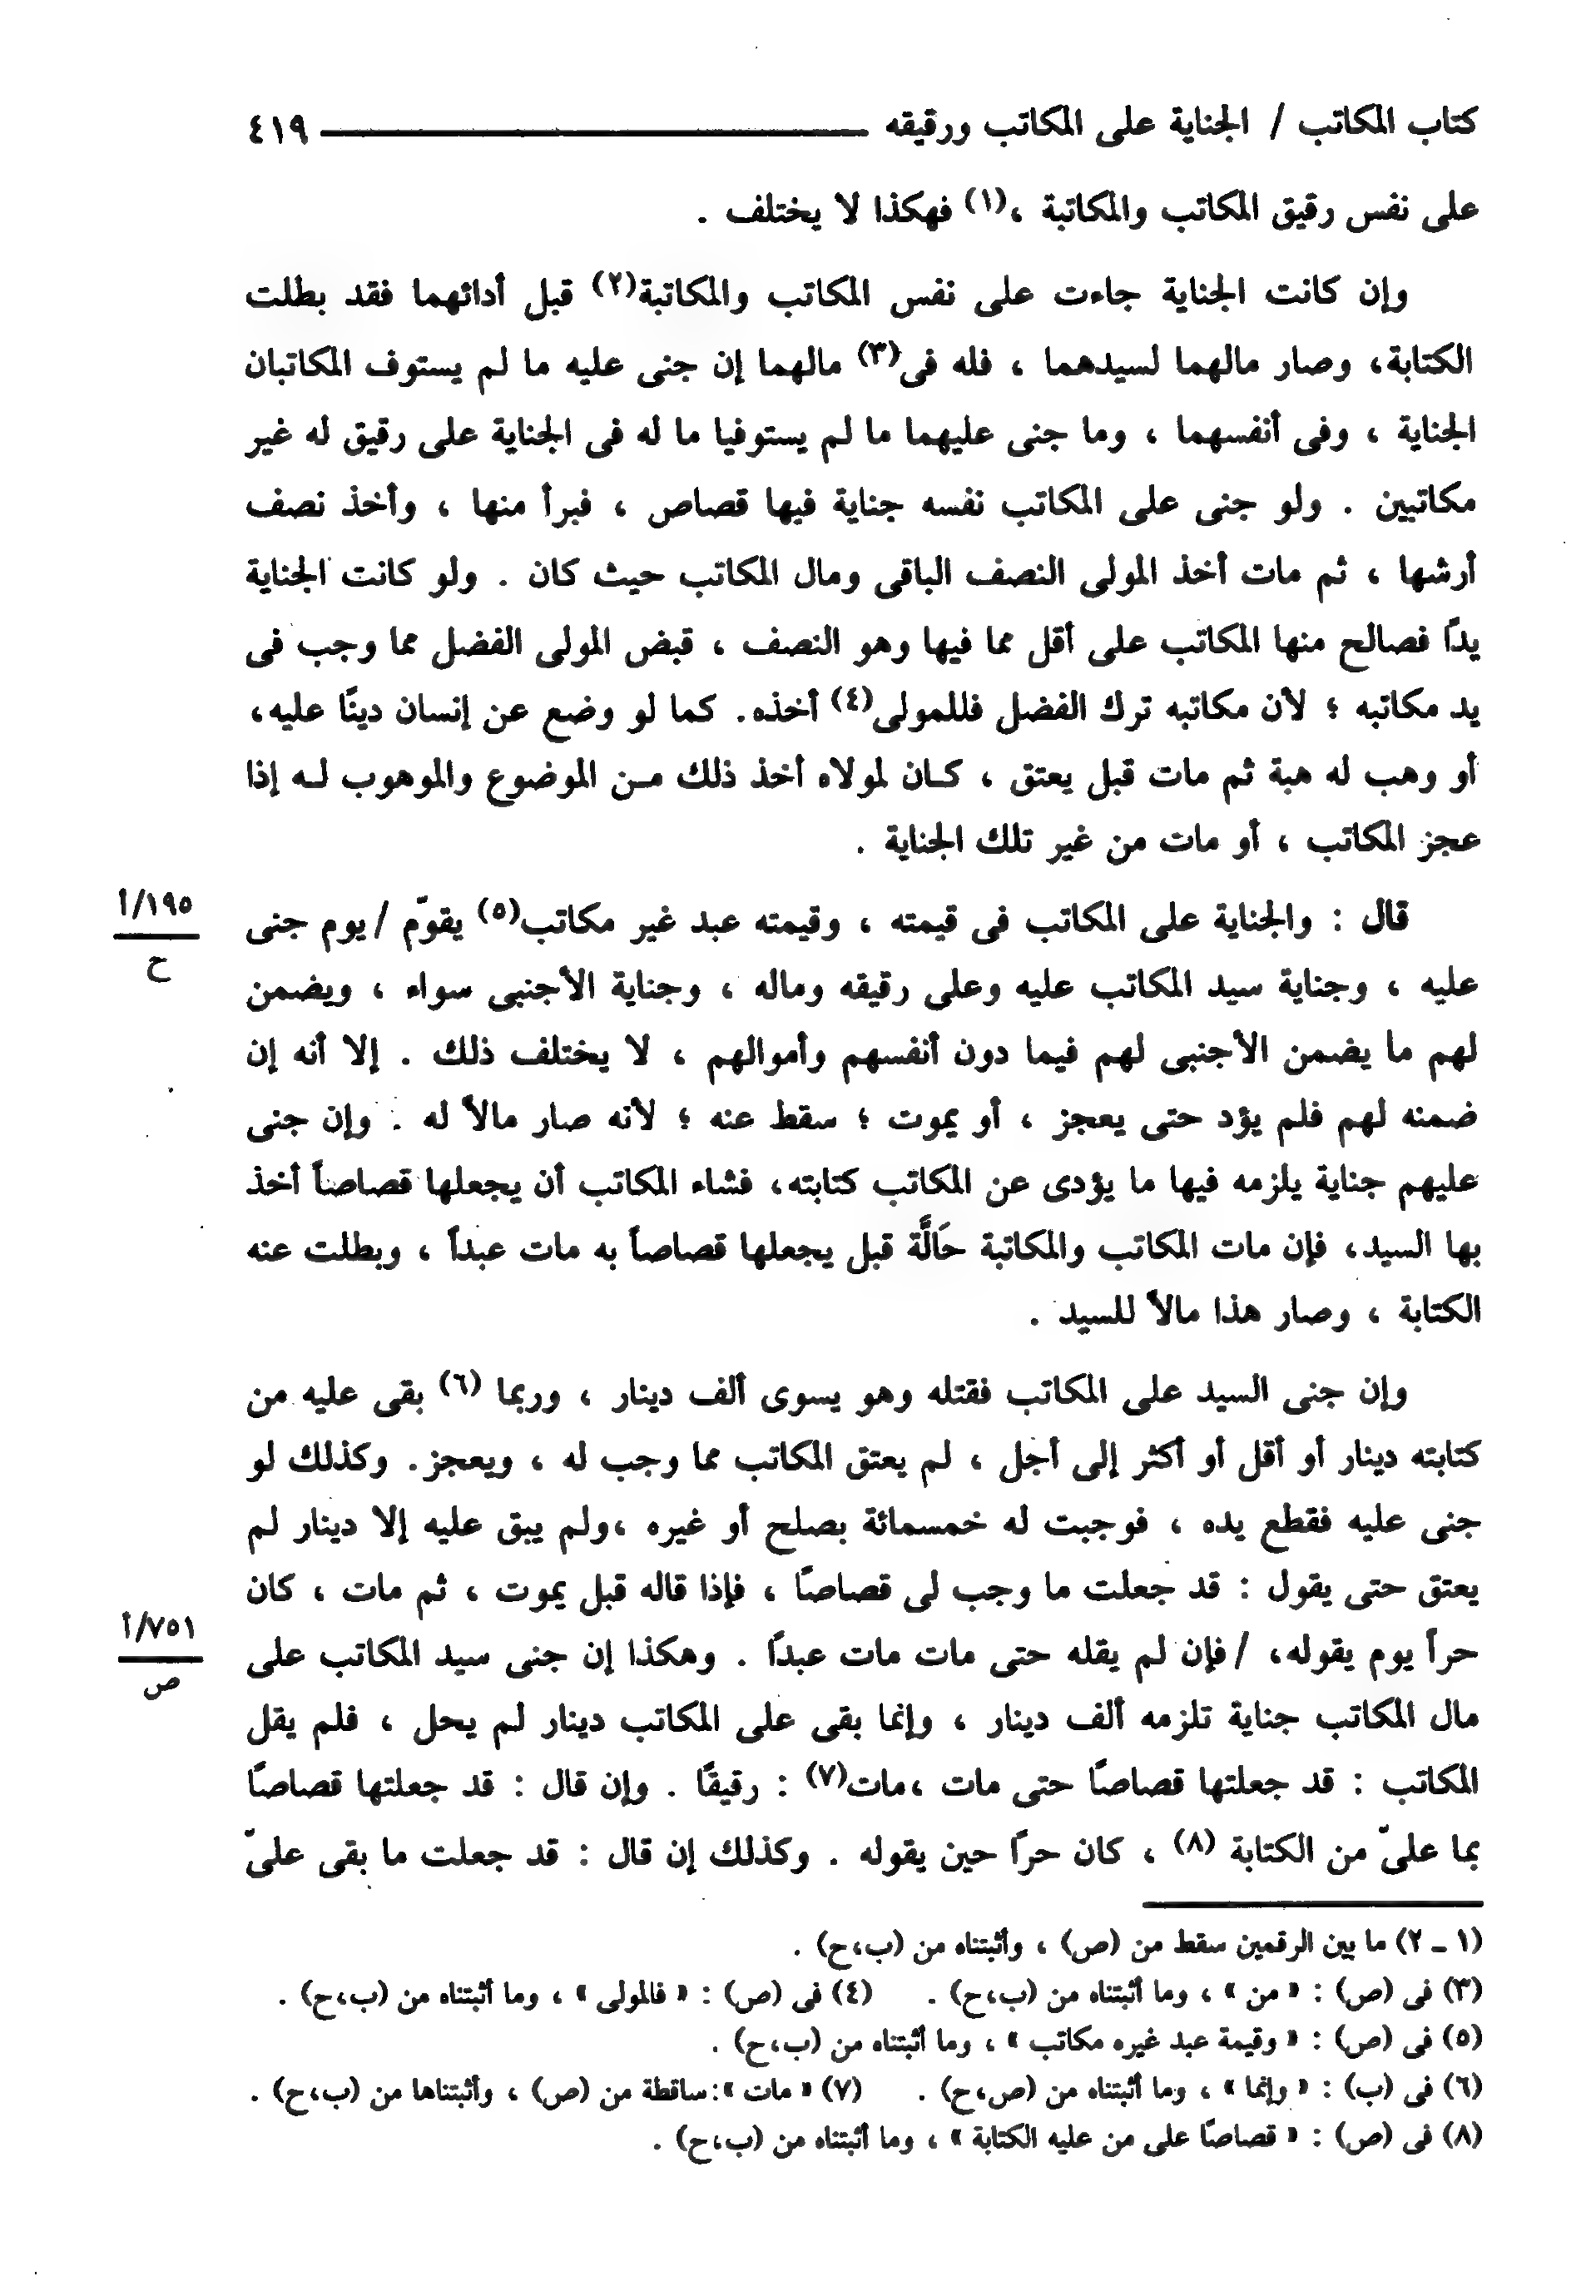 كتاب المكاتب / الجناية على المكاتب ورقيقه ٤١٩
على نفس رقيق المكاتب والمكاتبة ،(١) فهكذا لا يختلف .
وإن كانت الجناية جاءت على نفس المكاتب والمكاتبة(٢) قبل أدائهما فقد بطلت
الكتابة، وصار مالهما لسيدهما ، فله فى(٣) مالهما إن جنى عليه ما لم يستوف المكاتبان
الجناية ، وفى أنفسهما ، وما جنى عليهما ما لم يستوفيا ما له فى الجناية على رقيق له غير
مكاتبين . ولو جنى على المكاتب نفسه جناية فيها قصاص ، فبرأ منها ، وأخذ نصف
أرشها ، ثم مات أخذ المولى النصف الباقى ومال المكاتب حيث كان . ولو كانت الجناية
يدًا فصالح منها المكاتب على أقل مما فيها وهو النصف ، قبض المولى الفضل مما وجب فى
يد مكاتبه ؛ لأن مكاتبه ترك الفضل فللمولى(٤) أخذه. كما لو وضع عن إنسان دينًا عليه،
أو وهب له هبة ثم مات قبل يعتق ، كـان لمولاه أخذ ذلك مـن الموضوع والموهوب لـه إذا
عجز المكاتب ، أو مات من غير تلك الجناية .
قال : والجناية على المكاتب فى قيمته ، وقيمته عبد غير مكاتب(٥) يقوّم / يوم جنى
١٩٥/أ
ح
عليه ، وجناية سيد المكاتب عليه وعلى رقيقه وماله ، وجناية الأجنبى سواء ، ويضمن
لهم ما يضمن الأجنبى لهم فيما دون أنفسهم وأموالهم ، لا يختلف ذلك . إلا أنه إن
ضمنه لهم فلم يؤد حتى يعجز ، أو يموت ؛ سقط عنه ؛ لأنه صار مالاً له . وإن جنى
عليهم جناية يلزمه فيها ما يؤدى عن المكاتب كتابته، فشاء المكاتب أن يجعلها قصاصاً أخذ
بها السيد، فإن مات المكاتب والمكاتبة حَالَّة قبل يجعلها قصاصاً به مات عبداً ، وبطلت عنه
الكتابة ، وصار هذا مالاً للسيد .
وإن جنى السيد على المكاتب فقتله وهو يسوى ألف دينار ، وربما (٦) بقى عليه من
كتابته دينار أو أقل أو أكثر إلى أجل ، لم يعتق المكاتب مما وجب له ، ويعجز. وكذلك لو
جنى عليه فقطع يده ، فوجبت له خمسمائة بصلح أو غيره ،ولم يبق عليه إلا دينار لم
يعتق حتى يقول : قد جعلت ما وجب لى قصاصًا ، فإذا قاله قبل يموت ، ثم مات ، كان
حراً يوم يقوله، / فإن لم يقله حتى مات مات عبدًا . وهكذا إن جنى سيد المكاتب على
٧٥١/أ
ص
مال المكاتب جناية تلزمه ألف دينار ، وإنما بقى على المكاتب دينار لم يحل ، فلم يقل
المكاتب : قد جعلتها قصاصًا حتى مات ،مات(٧) : رقيقًا . وإن قال : قد جعلتها قصاصًا
بما علىّ من الكتابة (٨) ، كان حرًا حين يقوله . وكذلك إن قال : قد جعلت ما بقى علىّ
(١ ـ ٢) ما بين الرقمين سقط من (ص) ، وأثبتناه من (ب،ح) .
(٣) فى (ص) : « من » ، وما أثبتناه من (ب،ح) . (٤) فى (ص) : « فالمولى » ، وما أثبتناه من (ب،ح) .
(٥) فى (ص) : « وقيمة عبد غيره مكاتب » ، وما أثبتناه من (ب،ح) .
(٦) فى (ب) : « وإنما » ، وما أثبتناه من (ص،ح) . (٧) « مات »:ساقطة من (ص) ، وأثبتناها من (ب،ح) .
(٨) فى (ص) : « قصاصًا على من عليه الكتابة » ، وما أثبتناه من (ب،ح) .